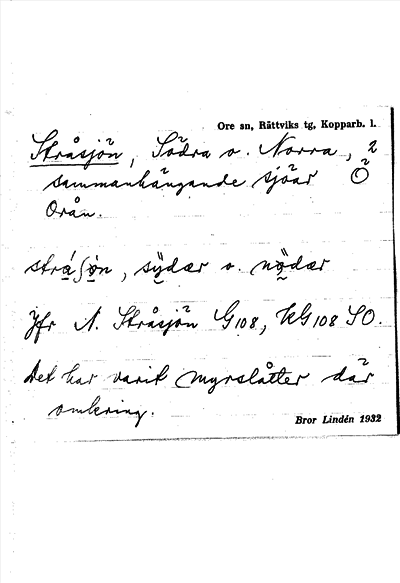 Ore sn, Rättviks tg, Kopparb. l.
Stråsjön, Södra o. Norra, 2
sammanhängande sjöar Ö
Orån.
Jfr N. Stråsjön G108, KG108 SO.
Det har varit myrslåtter där
omkring.
Bror Lindén 1932